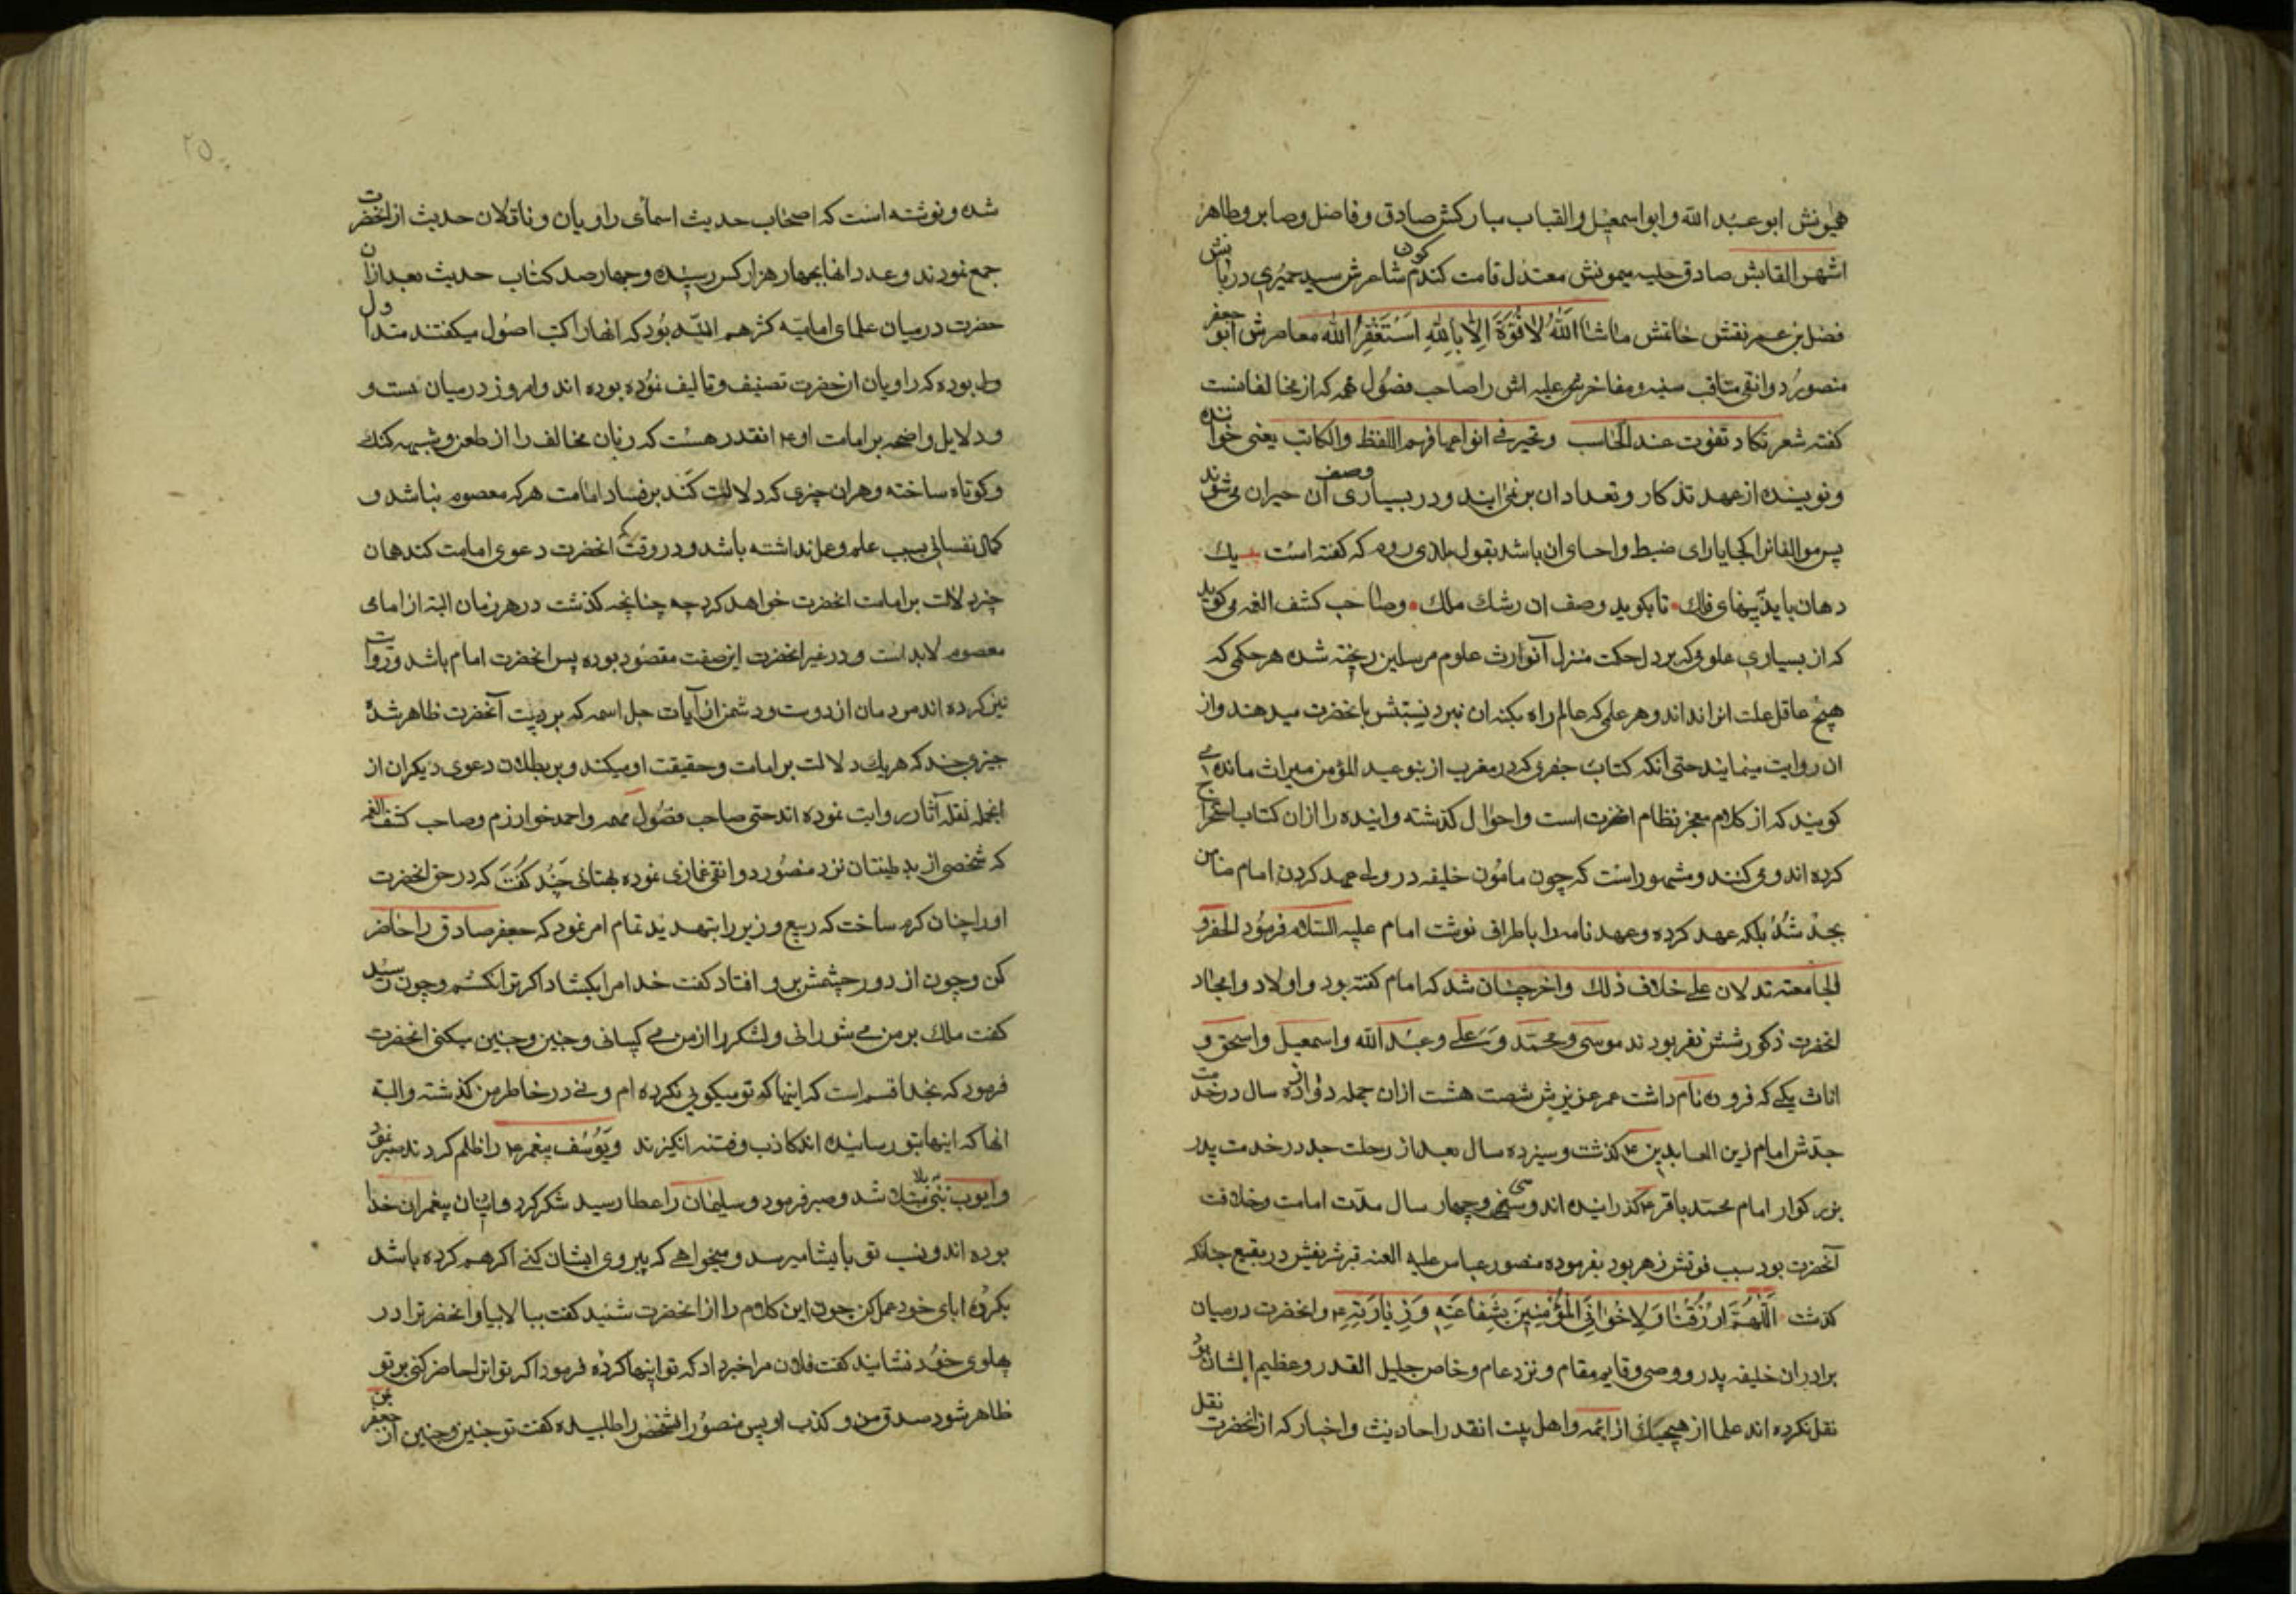 همیونش ابو عبد الله و ابو اسمعیل و القاب مبارکش صادق و فاضل و صابر و طاهر
اشهر القابش صادق حلیه میمونش معتدل قامت کندم کون شاعرش سید حمیری دربانش
فضل بن عمر نقش خاتمش ماشاا الله لا قوة الا بالله استغفر الله معاصرش ابو جعفر
منصور دوانقی مناقب سنیه و مفاخر علیه اش را صاحب فصول که از مخالفانست
کفته شعر تکاد تفوت عند الحاسب وتحیر فی انواعها فهم اللفظ والکاتب یعنی خواننده
و نویسنده از عهد تذکار و تعداد ان بر نمی ایند و در بسیاری وصف آن حیران می شوند
پس موالفانرا کجا یارای ضبط و احسای ان باشد بقول که کفته است یك
دهان باید بپهنای فلك تا بکوید وصف ان رشك ملك وصاحب کشف الغمه می کوید
که از بسیاری علوم که بر دل حکمت منزل آنوارث علوم مرسلین ریخته شده هر حکمی که
هیچ عاقل علت انرا نداند و هر علمی که عالم راه بکنه ان نبرد نسبتش بانحضرت میدهند و از
ان روایت مینمایند حتی آنکه کتاب جفری که در مغرب از بنو عبد المؤمن میراث مانده می
کویند که از کلام معجز نظام انحضرت است و احوال کذشته و اینده را ازان کتاب استخراج
کرده اند و می کنند و مشهور است که چون مامون خلیفه در ولی عهد کردن امام ضامن
بجد شد بلکه عهد کرده و عهد نامه را باطراف نوشت امام علیه السلام فرمود الجفر و
الجامعة تدلان علی خلاف ذلك و اخر چنان شد که امام کفته بود و اولاد و امجاد
انحضرت ذکور شش نفر بودند موسی و محمد و علی و عبد الله و اسمعیل و اسحق و
اناث یکی که فروه نام داشت عمر عزیزش شصت هشت ازان جمله دوازده سال در خدمت
جدش امام زین العابدین ع کذشت و سیزده سال بعد از رحلت جد در خدمت پدر
بزرکوار امام محمد باقر ع کذرانیده اند و سی و چهار سال مدت امامت و خلافت
آنحضرت بود سبب فوتش زهر بود بفرموده منصور عباس علیه العنه قبر شریفش در بقیع چنانکه
کذشت اللهم ارزقنا ولاخوانی المؤمنین بشفاعته وزیارته ع و انحضرت درمیان
برادران خلیفه پدر و وصی و قایم مقام و نزد عام و خاص جلیل القدر و عظیم الشان بود
نقل نکرده اند علما از هیچیك از ائمه و اهل بیت انقدر احادیث و اخبار که از انحضرت نقل
شده و نوشته است که اصحاب حدیث اسمای راویان و ناقلان حدیث از انحضرت
جمع نمودند و عدد انها بچهار هزار کس رسیده و چهار صد کتاب حدیث بعد ازان
حضرت درمیان علمای امامیه کثرهم الله بود که انها را کتب اصول میکفتند متداول
بوده که راویان ان حضرت تصنیف و تالیف نموده بوده اند و امروز درمیان هست و
و دلایل واضحه بر امامت او ع انقدر هست که زبان مخالف را از طعن و شبهه کنك
و کوتاه ساخته و هران چیزی که دلالت کند بر فساد امامت هر که معصوم نباشد و
کمال نفسانی بسبب علم و عمل نداشته باشد و در وقت که انحضرت دعوی امامت کند همان
چیز دلالت بر امامت انحضرت خواهد کرد چه چنانچه کذشت در هر زمان البته از امامی
معصوم لابد است و در غیر انحضرت این صفت مفقود بوده پس انحضرت امام باشد و روایت
نیز کرده اند مردمان از دوست و دشمن از آیات جل اسمه که بر دست آنحضرت ظاهر شده
چیزی چند که هریك دلالت بر امامت و حقیقت او میکند و بر بطلان دعوی دیکران از
انجمله نقله آثار روایت نموده اند حتی صاحب فصول مهمه و احمد خوارزم و صاحب کشف الغمه
که شخصی از بد طینتان نزد منصور دوانقی غمازی نموده بهتانی چند کفت که در حق انحضرت
او را چنان کرم ساخت که ربیع وزیر را بتهدید تمام امر نمود که جعفر صادق را حاضر
کن و چون از دور چشمش بر او افتاد کفت خدا مرا بکشاد اکر ترا نکشم و چون رسید
کفت ملك بر من می شورانی و لشکر را از من می و چنین و چنین میکنی انحضرت
فرمود که بخدا قسم است که اینها که تو میکویی نکرده ام و نی در خاطر من کذشته و البته
انها که اینها بتو رسانیده اند کاذب و فتنه انکیزند و یوسف پیغمبر ع را ظلم کردند صبر نمود
و ایوب نبی مبتلا شد و صبر فرمود و سلیمان را عطا رسید شکر کرد و اینان پیغمبران خدا
بوده اند و نسب تو بایشان میرسد و میخواهی که پیروی ایشان کنی اکر هم کرده باشد
بکرده ابای خود عمل کن چون این کلام را از انحضرت شنید کفت ببالا بیا و انحضرترا در
پهلوی خود نشانید کفت فلان مرا خبر داد که تو اینها کرده فرمود اکر تو انرا حاضر کنی بر تو
ظاهر شود صدق من و کذب او پس منصور انشخص را طلبیده کفت تو چنین و چنین از جعفر بن